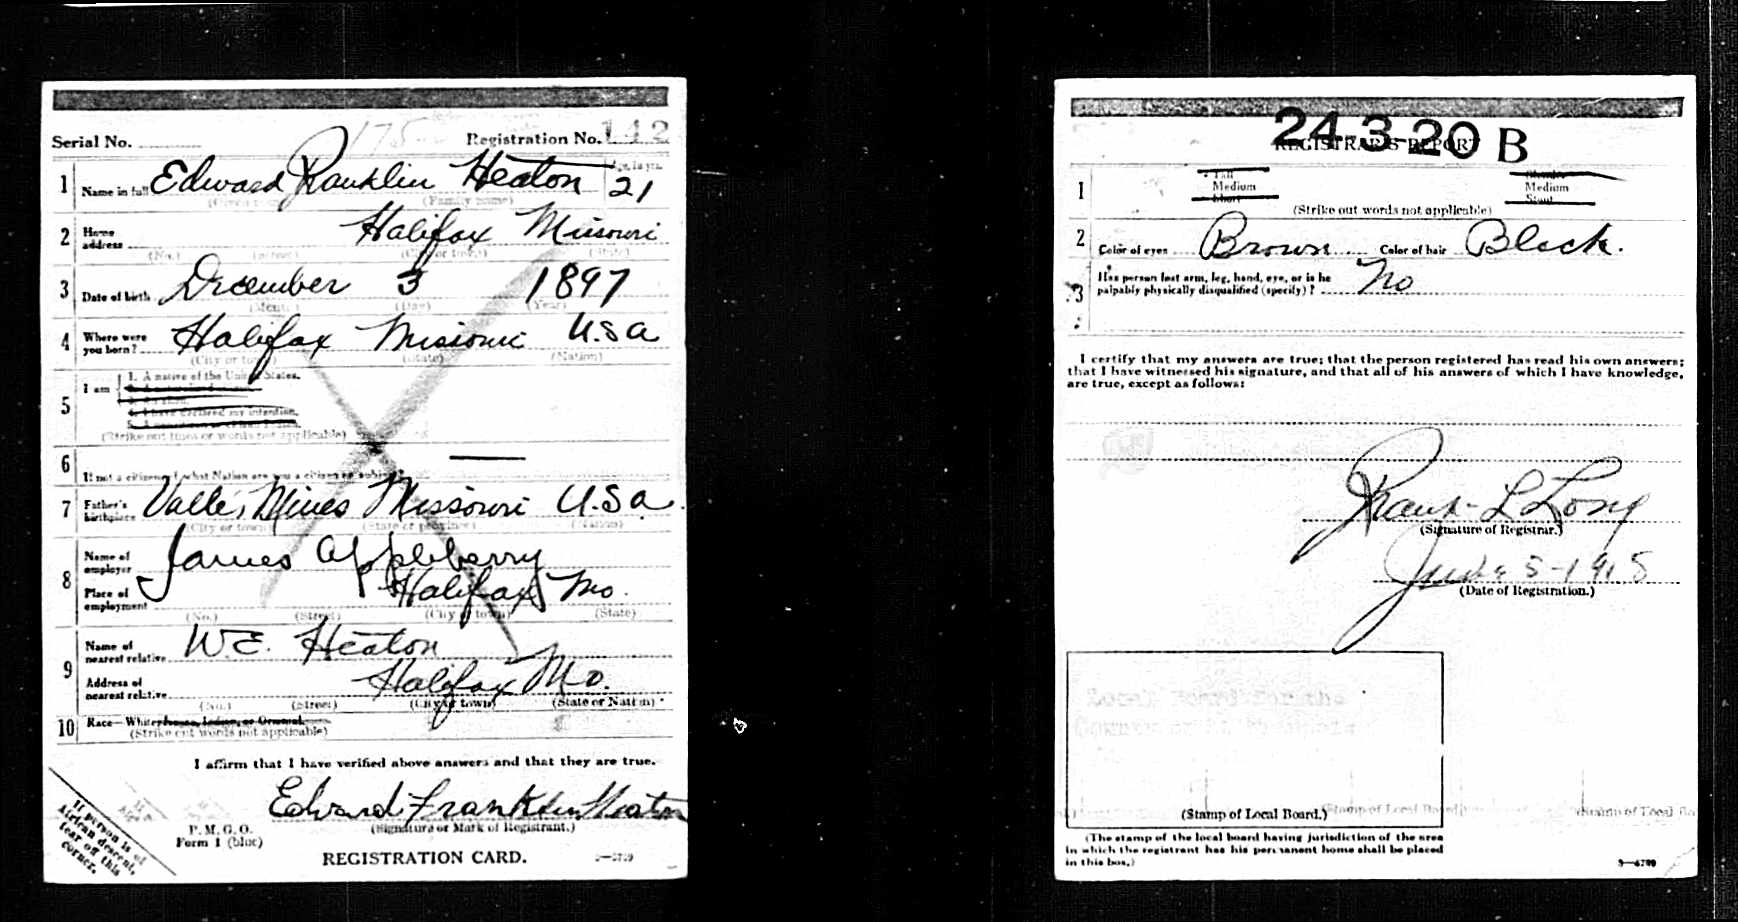 Serial No. 175 Registration No. 142
1 Name in full Edward Franklin Heaton Age, in yrs. 21
(Given name) (Family name)
2 Home address Halifax Missouri
(No.) (Street) (City or town) (State)
3 Date of birth December 3 1897
(Month) (Day) (Year)
4 Where were you born? Halifax Missouri U.S.A
(City or town) (State) (Nation)
5 I am 1. A native of the United States.
4. I have declared my intention.
(Strike out lines or words not applicable)
6 If not a citizen, of what Nation are you a citizen or subject?
7 Father's birthplace Valle, Mines Missouri U.S.A.
(City or town) (State or province) (Nation)
8 Name of employer James Appleberry
Place of employment Halifax Mo.
(No.) (Street) (City or town) (State)
9 Name of nearest relative W.E. Heaton
Address of nearest relative Halifax Mo.
(No.) (Street) (City or town) (State or Nation)
10 Race—White, Negro, Indian, or Oriental.
(Strike out words not applicable)
I affirm that I have verified above answers and that they are true.
Edward Franklin Heaton
(Signature or Mark of Registrant.)
P. M. G. O.
Form 1 (blue)
REGISTRATION CARD.
If person is of
African descent,
tear off this
corner.
24-3-20 B
REGISTRAR'S REPORT
1 Tall Slender
Medium Medium
Short Stout
(Strike out words not applicable)
2 Color of eyes Brown Color of hair Black.
3 Has person lost arm, leg, hand, eye, or is he
palpably physically disqualified (specify)? No
I certify that my answers are true; that the person registered has read his own answers;
that I have witnessed his signature, and that all of his answers of which I have knowledge,
are true, except as follows:
Frank L Long
(Signature of Registrar.)
June 5-1918
(Date of Registration.)
Local Board for the
(Stamp of Local Board.)
(The stamp of the local board having jurisdiction of the area
in which the registrant has his permanent home shall be placed
in this box.)
3—6789